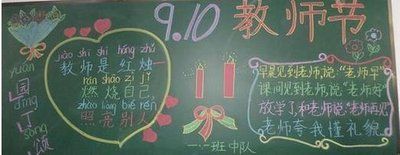 9.10 教师节
yuán
园
dīng
丁
sòng
颂
jiào shī shì hóng zhú
教师是红烛
rán shāo zì jǐ
燃烧自己
zhào liàng bié rén
照亮别人
早晨见到老师,说:"老师早"
课间见到老师,说:"老师好"
放学了和老师,说:"老师再见"
老师夸我懂礼貌
一·一班中队